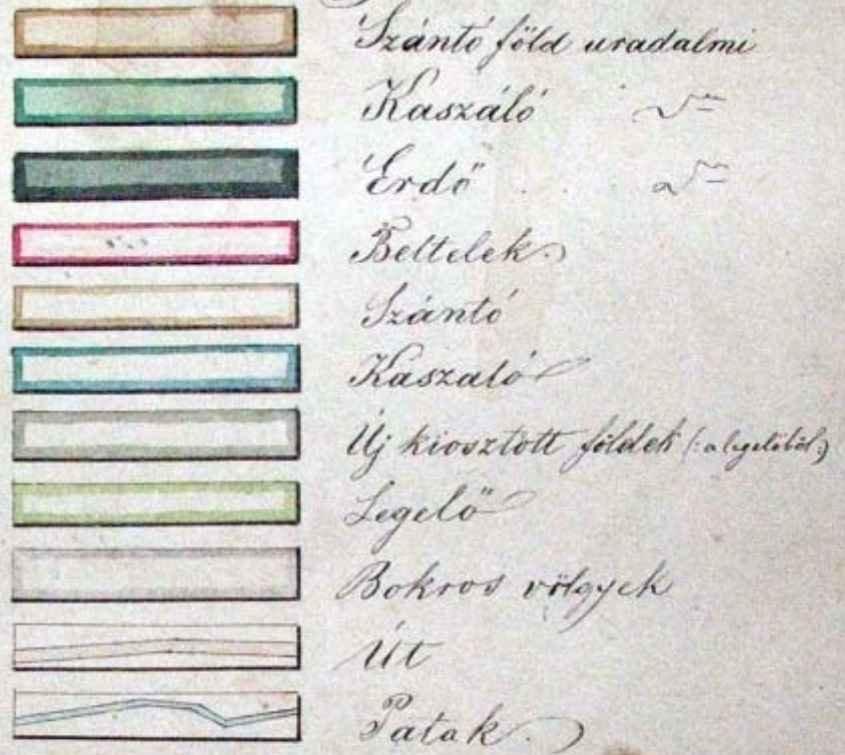 Szántó föld uradalmi
Kaszáló
Erdő
Beltelek
Szántó
Kaszaló
Új kiosztott földek (: a legelőből :)
Legelő
Bokros völgyek
Út
Patak